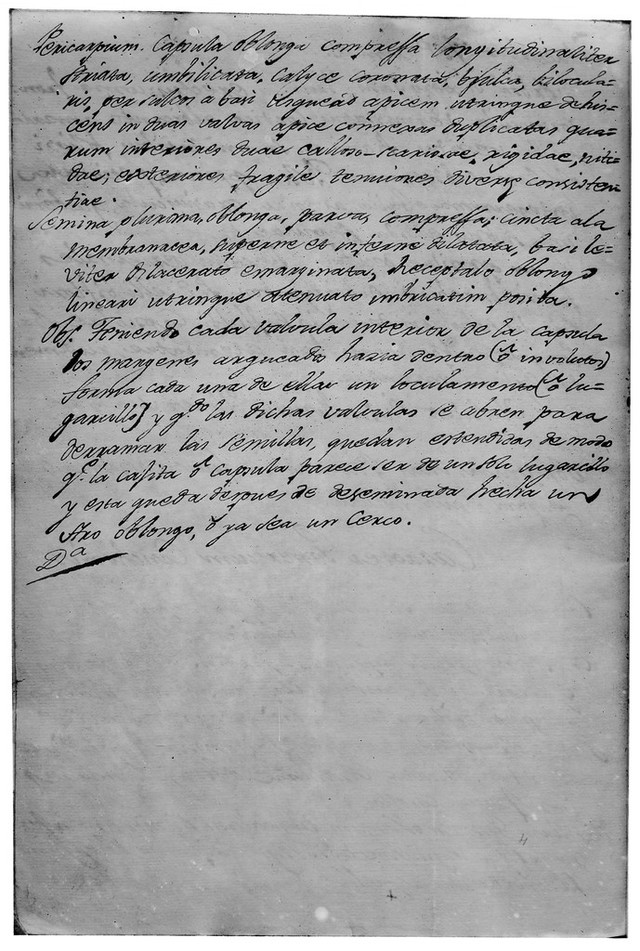 Pericarpium. Capsula oblonga compressa longitudinaliter
striata, umbilicata, calyce coronata, bisulca, bilocula-
ris, per sulcos à basi usque ad apicem utrinque dehis-
cens in duas valvas apice connexas duplicatas qua-
rum interiores duae calloso- rigidae, niti-
dae; exteriores fragile tenuiores diversę consisten-
tiae.
Semina plurima, oblonga, parva, compressa; cincta ala
membranacea, superne et inferne dilatata, basi le-
viter dilacerato emarginata, Receptalo oblongo
lineari utringue atenuato imbricatim posita.
Obs. Teniendo cada valvula interior de la capsula
los margenes arqueados hazia dentro (ò involutos)
forma cada una de ellas un loculamento (ò lu-
garcillo) y qdo las dichas valvulas se abren para
derramar las semillas, quedan estendidas de modo
qe la cajita ò capsula parece ser de un solo lugarcillo
y esta queda despues de deseminada hecha un
Aro oblongo, ò ya sea un Cerco.
Da
4